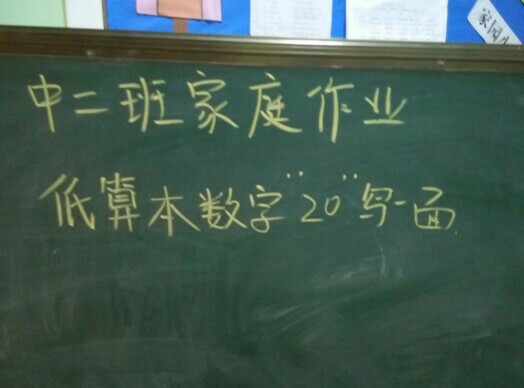 家园
中二班家庭作业
低算本数字“20”写一面.